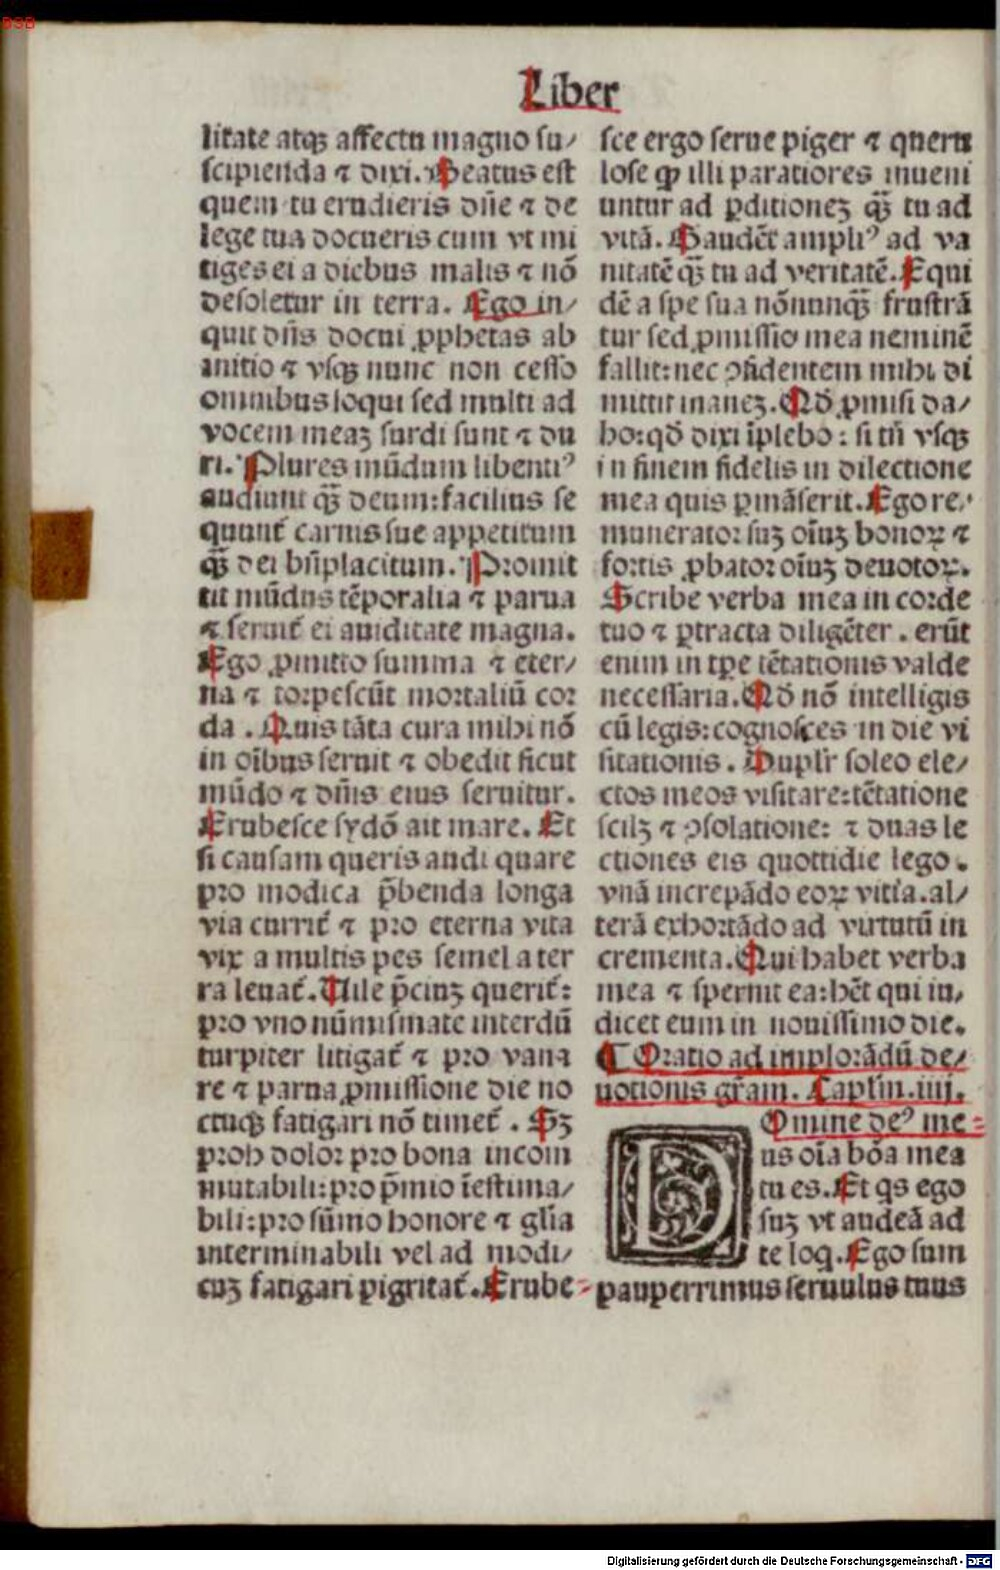 Liber
litate atqꝫ affectu magno su/
scipienda ⁊ dixi. Beatus est
quem tu erudieris dñe ⁊ de
lege tua docueris eum vt mi
tiges ei a diebus malis ⁊ nõ
desoletur in terra. Ego in/
quit dñs docui ꝓphetas ab
initio ⁊ vsqꝫ nunc non cesso
omnibus loqui sed multi ad
vocem meaꝫ surdi sunt ⁊ du
ri. Plures mũdum libentiꝰ
audiunt qꝫ̃ deum: facilius se
quunt̃ carnis sue appetitum
qꝫ̃ dei bñplacitum. Promit
tit mũdus tẽporalia ⁊ parua
⁊ seruit̃ ei auiditate magna.
Ego ꝓmitto summa ⁊ eter/
na ⁊ torpescũt mortaliũ cor
da . Quis tãta cura mihi nõ
in oĩbus seruit ⁊ obedit sicut
mũdo ⁊ dñis eius seruitur.
Erubesce sydõ ait mare. Et
si causam queris audi quare
pro modica p̃benda longa
via currit̃ ⁊ pro eterna vita
vix a multis pes semel a ter
ra leuat̃. Uile p̃ciuꝫ querit̃:
pro vno nũmismate interdũ
turpiter litigat̃ ⁊ pro vana
re ⁊ parua ꝓmissione die no
ctuqꝫ fatigari nõ timet̃ . Sꝫ
proh dolor pro bona incom
mutabili: pro p̃mio ĩestima/
bili: pro sũmo honore ⁊ glĩa
interminabili vel ad modi/
cuꝫ fatigari pigritat̃. Erube
sce ergo serue piger ⁊ queru
lose ꝙ illi paratiores inueni
untur ad ꝑditioneꝫ qꝫ̃ tu ad
vitã. Gaudẽt ampliꝰ ad va
nitatẽ qꝫ̃ tu ad veritatẽ. Equi
dẽ a spe sua nõnunqꝫ̃ frustrã
tur sed ꝓmissio mea neminẽ
fallit: nec ꝯfidentem mihi di
mittit inaneꝫ. Qđ ꝓmisi da/
bo: qđ dixi ĩplebo: si tñ vsqꝫ
in finem fidelis in dilectione
mea quis ꝑmãserit. Ego re/
munerator suꝫ oĩuꝫ bonoꝝ ⁊
fortis ꝓbator oĩuꝫ deuotoꝝ.
Scribe verba mea in corde
tuo ⁊ ꝑtracta diligẽter . erũt
enim in tꝑe tẽtationis valde
necessaria. Qđ nõ intelligis
cũ legis: cognosces in die vi
sitationis . Duplr̃ soleo ele/
ctos meos visitare: tẽtatione
scilꝫ ⁊ ꝯsolatione: ⁊ duas le
ctiones eis quottidie lego.
vnã increpãdo eoꝝ vitia. al/
terã exhortãdo ad virtutũ in
crementa. Qui habet verba
mea ⁊ spernit ea: hẽt qui iu/
dicet eum in nouissimo die.
¶ Oratio ad implorãdũ de/
uotionis gr̃am. Caplm̃. iiij.
DOmine deꝰ me
us oĩa bõa mea
tu es. Et qs ego
suꝫ vt audeã ad
te loq. Ego sum
pauperrimus seruulus tuus
Digitalisierung gefördert durch die Deutsche Forschungsgemeinschaft - DFG